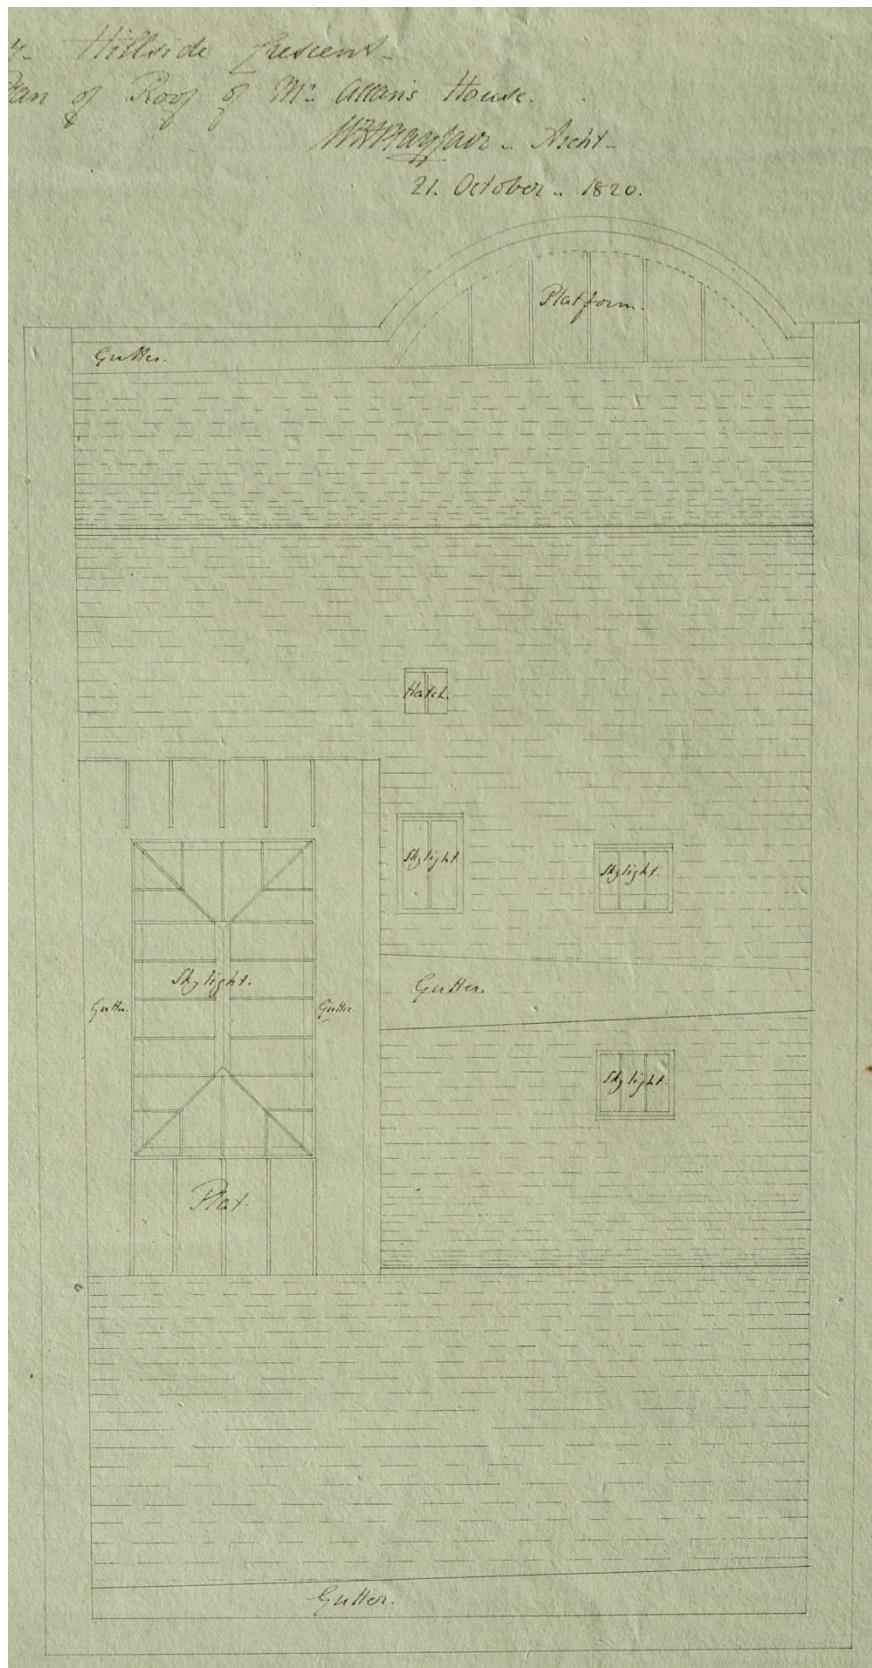 Hillside Crescent
Plan of Roof of Mr. Allan's House.
WHPlayfair - Archt.
21. October - 1820.
Platform.
Gutter.
Hatch.
Skylight
Skylight.
Skylight.
Gutter.
Gutter.
Gutter.
Skylight.
Plat.
Gutter.